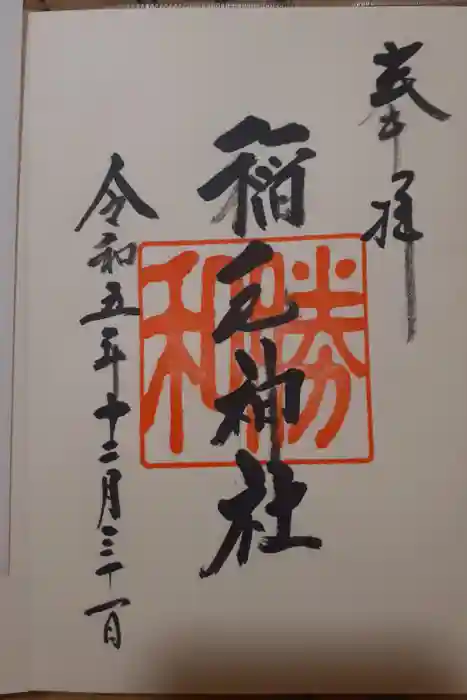 奉拝
稲毛神社
勝和
令和五年十二月三十一日